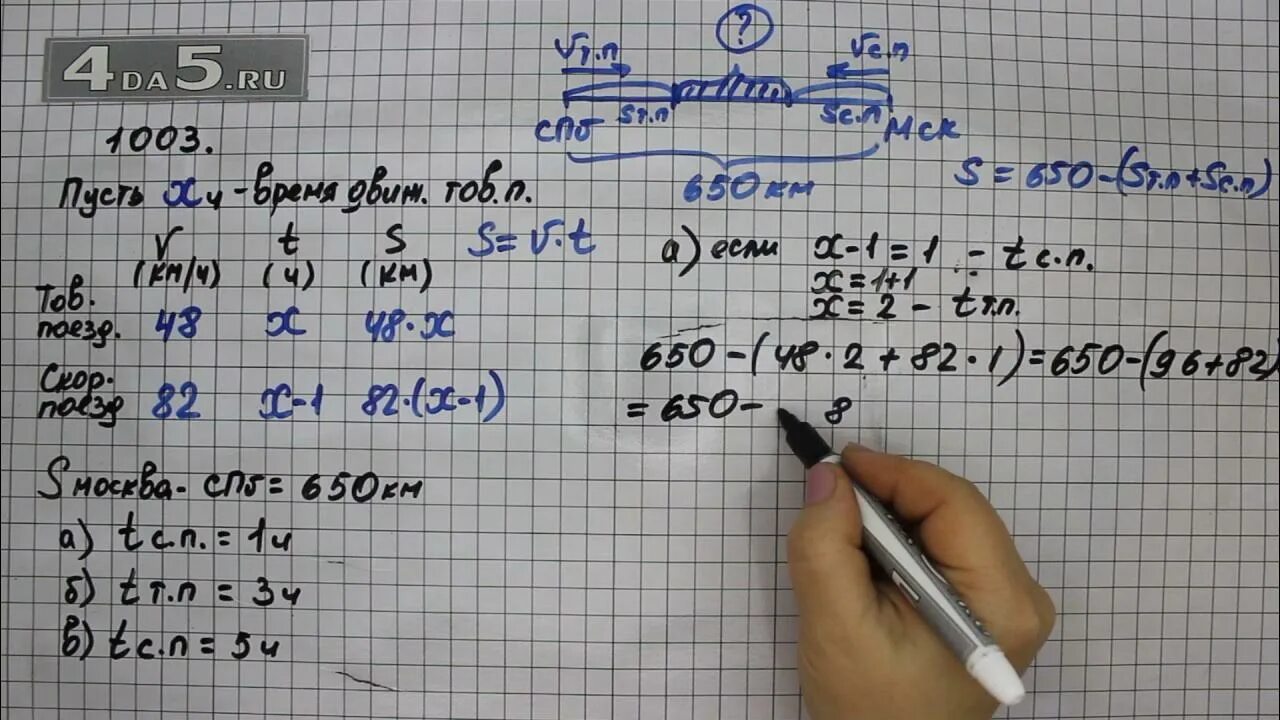 4DA5.RU
1003.
Пусть x ч - время движ. тов. п.
V t S S = V · t
(км/ч) (ч) (км)
Тов. поезд. 48 x 48 · x
Скор. поезд 82 x-1 82·(x-1)
S москва - СПб = 650 км
а) t с.п. = 1 ч
б) t т.п = 3 ч
в) t с.п = 5 ч
?
Vт.п Vс.п
Sт.п Sс.п
СПб МСК
650 км
S = 650-(Sт.п+Sс.п)
а) если x-1 = 1 - t с.п.
x = 1+1
x = 2 - t т.п.
650 - (48 · 2 + 82 · 1) = 650-(96+82)
= 650- 8